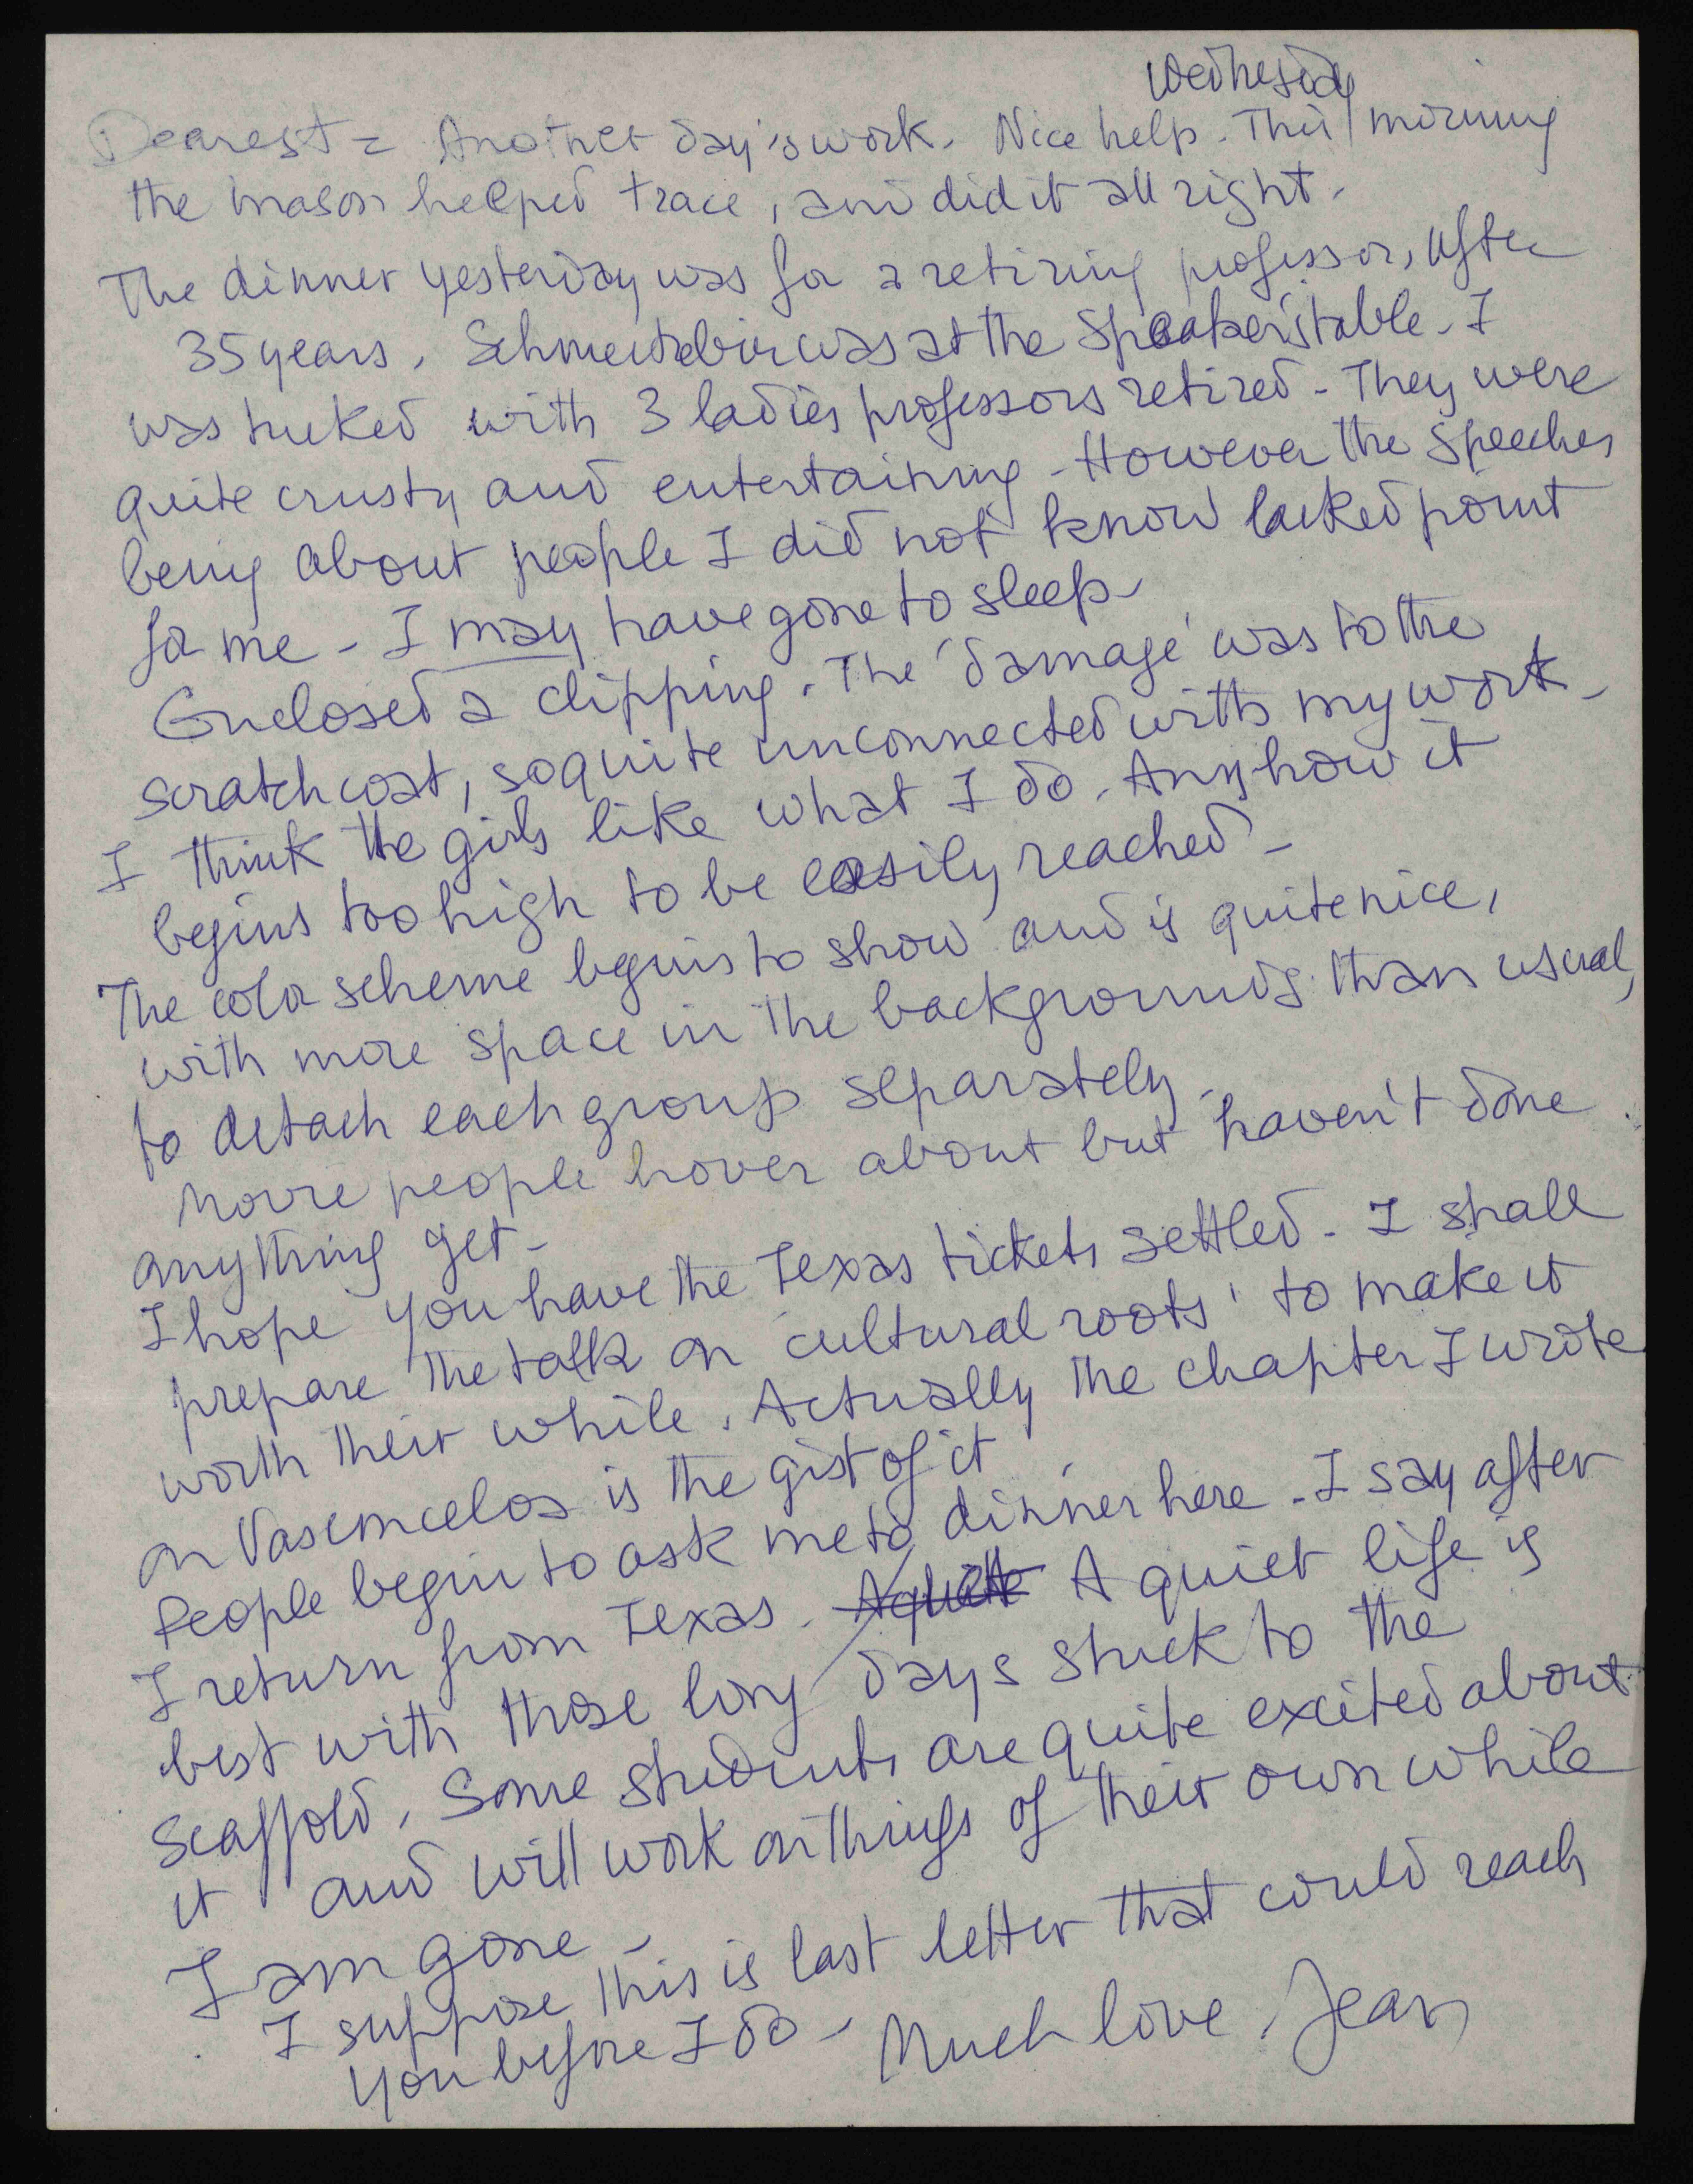 Wednesday
Dearest = Another day's work. Nice help. This morning
the mason helped trace, and did it all right.
The dinner yesterday was for a retiring professor, after
35 years. was at the Speaker's table. I
was tucked with 3 ladies professors retired - They were
quite crusty and entertaining - However the speeches
being about people I did not know lacked point
for me - I may have gone to sleep -
Enclosed a clipping. The 'damage' was to the
scratch coat, so quite unconnected with my work -
I think the girls like what I do. Anyhow it
begins too high to be easily reached -
The color scheme begins to show and is quite nice,
with more space in the backgrounds than usual,
to detach each group separately.
Movie people hover about but haven't done
anything yet -
I hope you have the Texas tickets settled - I shall
prepare the talk on 'cultural roots' to make it
worth their while. Actually the chapter I wrote
on Vasconcelos is the gist of it
People begin to ask me to dinner here - I say after
I return from Texas. A quiet life is
best with those long days stuck to the
scaffold. Some students are quite excited about
it and will work on things of their own while
I am gone -
I suppose this is last letter that could reach
you before I do - Much love. Jean